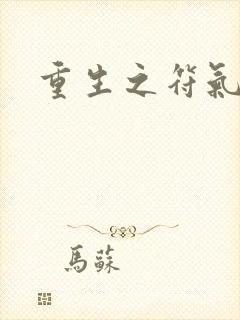 重生之符氣
馬蘇